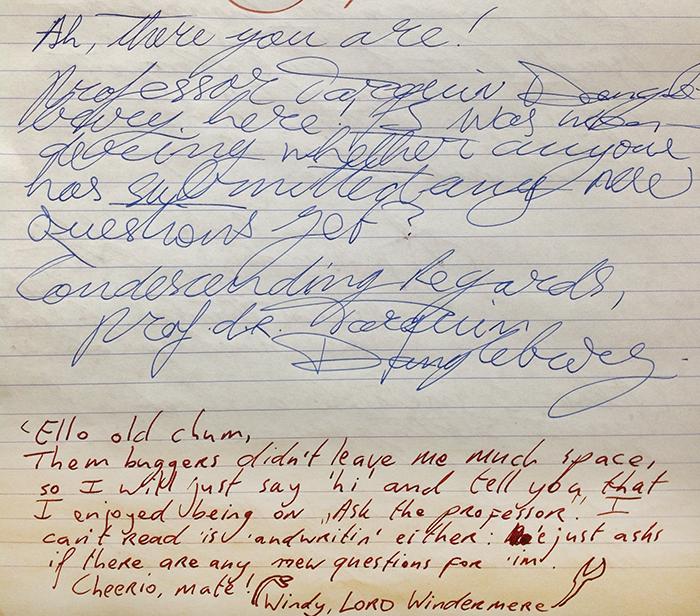 Ah, there you are!
Professor Tarquin Dangle-
bury here, I was won-
dering whether anyone
has submitted any new
questions yet?
Condescending Regards,
Prof. dr. Tarquin
Danglebury.
'Ello old chum,
Them buggers didn't leave me much space,
so I will just say 'hi' and tell you, that
I enjoyed being on „Ask the professor". I
can't read 'is 'andwritin' either: 'e just asks
if there are any new questions for 'im.
Cheerio, mate!
Windy, LORD Windermere